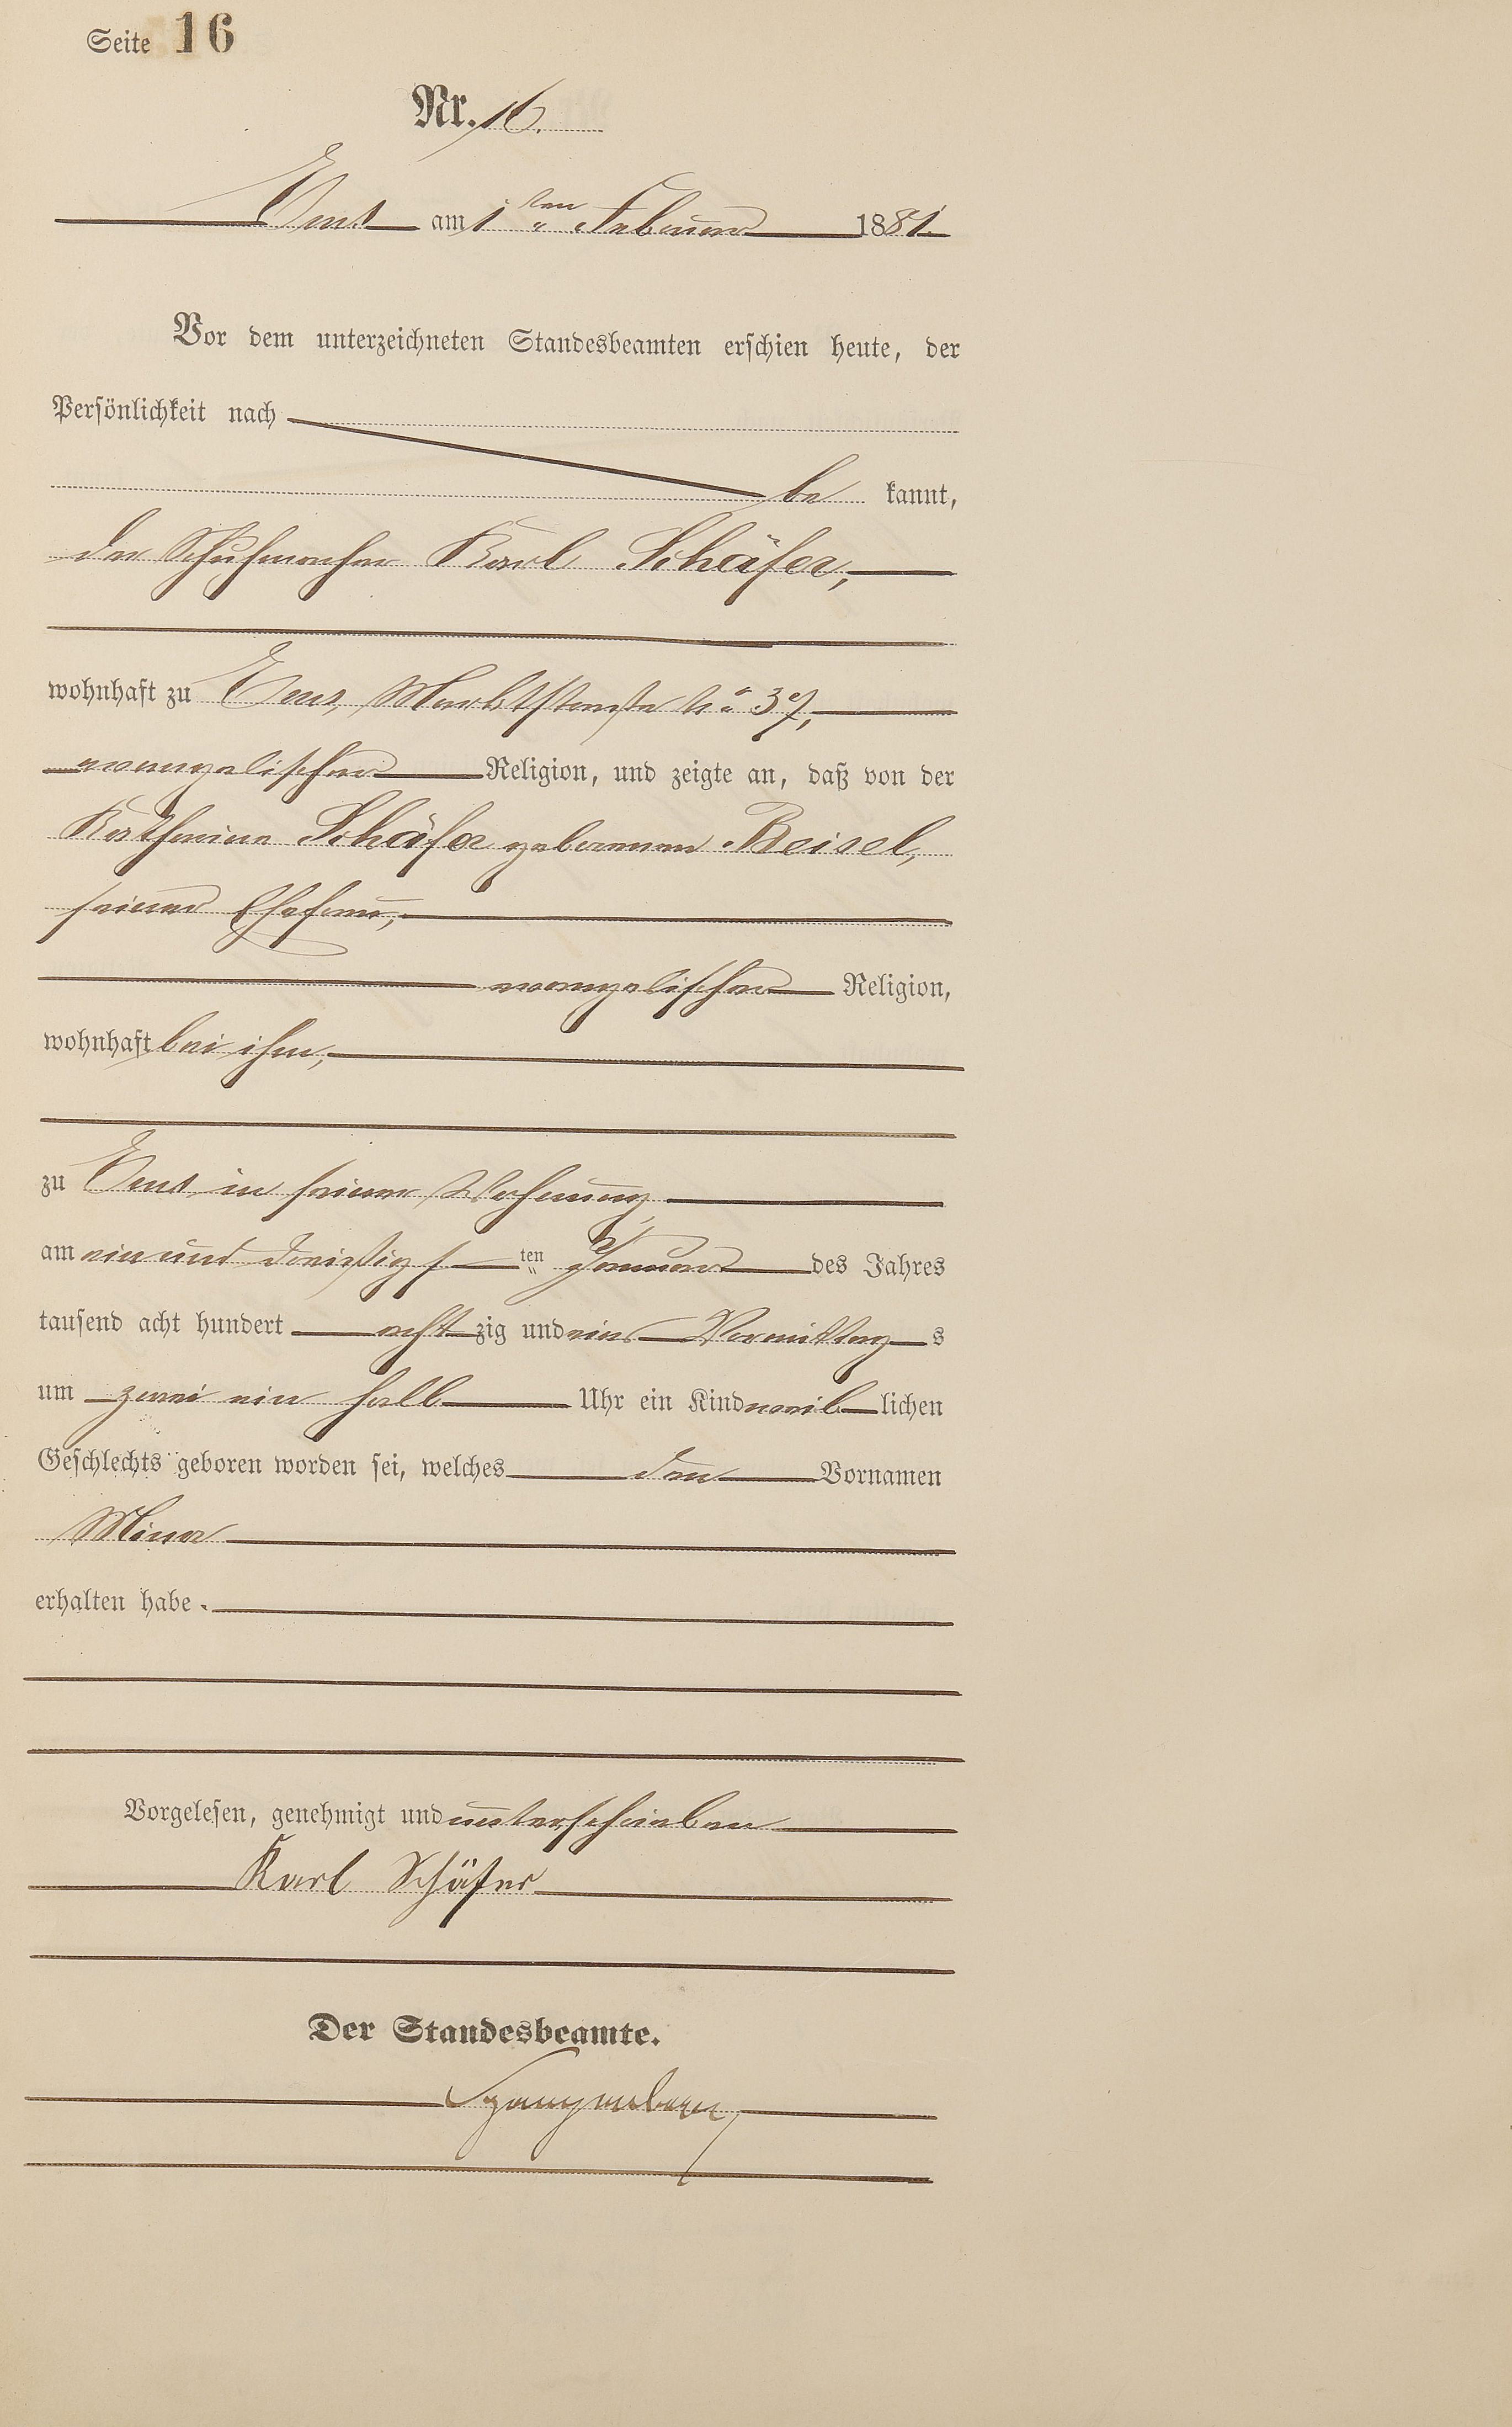 Seite 16
Nr. 16.
Ems am 1ten Februar 1881.
Vor dem unterzeichneten Standesbeamten erschien heute, der
Persönlichkeit nach
be kannt,
der Schuhmacher Karl Schäfer,
wohnhaft zu Ems, Marktstraße No 37,
evangelischer Religion, und zeigte an, daß von der
Katharina Schäfer geborenen Beisel,
seiner Ehefrau,
evangelischer Religion,
wohnhaft bei ihm,
zu Ems in seiner Wohnung,
am ein und dreißigsten Januar des Jahres
tausend acht hundert achtzig und eins Vormittags
um zwei ein halb Uhr ein Kind weiblichen
Geschlechts geboren worden sei, welches den Vornamen
Mina
erhalten habe.
Vorgelesen, genehmigt und unterschrieben
Karl Schäfer
Der Standesbeamte.
Spangenberg